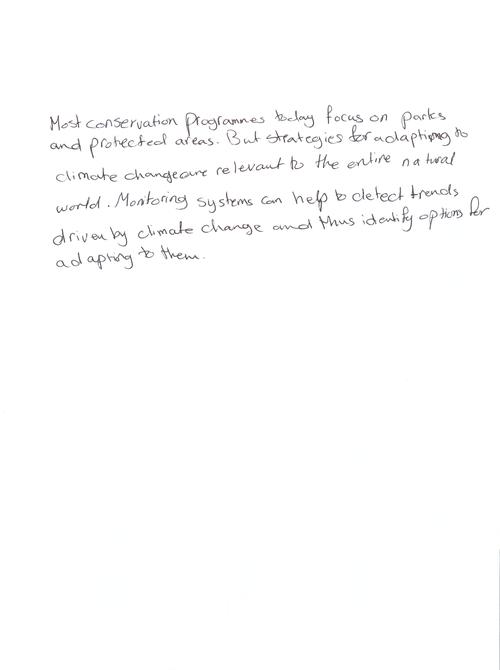 Most conservation Programmes today focus on parks
and protected areas. But strategies for adapting to
climate change are relevant to the entire natural
world. Montoring systems can help to detect trends
driven by climate change and thus identify options for
adapting to them.